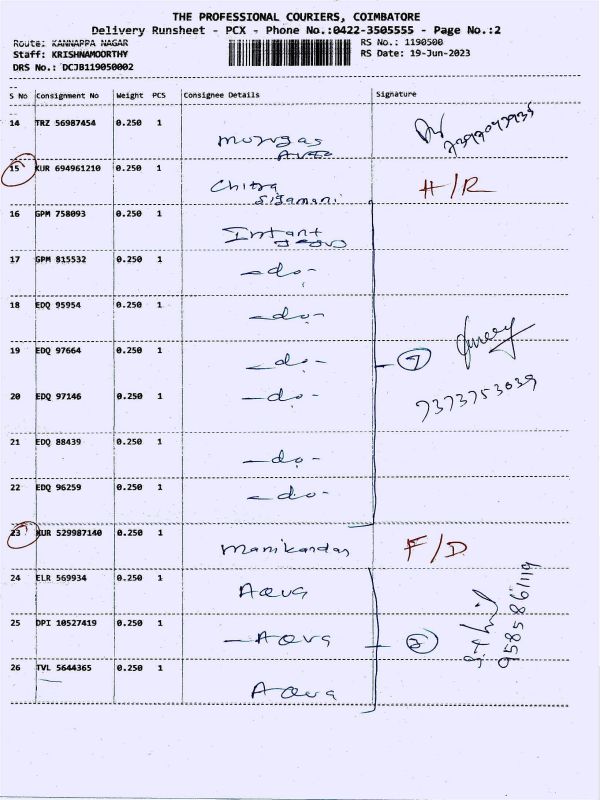 THE PROFESSIONAL COURIERS, COIMBATORE
Delivery Runsheet - PCX - Phone No.:0422-3505555 - Page No.:2
Route: KANNAPPA NAGAR RS No.: 1190500
Staff: KRISHNAMOORTHY RS Date: 19-Jun-2023
DRS No.: DCJB119050002
S No Consignment No Weight PCS Consignee Details Signature
14 TRZ 56987454 0.250 1
15 KUR 694961210 0.250 1 Chitra Sigamani H/R
16 GPM 758093 0.250 1 Intant
17 GPM 815532 0.250 1 -do-
18 EDQ 95954 0.250 1 -do-
19 EDQ 97664 0.250 1 -do- 7
20 EDQ 97146 0.250 1 -do- 7373753039
21 EDQ 88439 0.250 1 -do-
22 EDQ 96259 0.250 1 -do-
23 KUR 529987140 0.250 1 Manikandan F/D
24 ELR 569934 0.250 1 Aqua
25 DPI 10527419 0.250 1 - Aqua 9585861119
26 TVL 5644365 0.250 1 Aqua